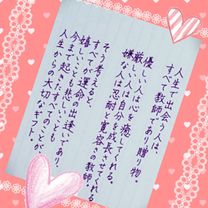 人生で出会う人は、
すべて教師であり、贈り物。
優しい人は心を癒してくれる。
厳しい人は自分を成長させる。
嫌な人は忍耐と寛容を教える
そう考えると、
すべてが運命の出逢いであり、
嬉しいことも悲しいことも
今まで起きたすべてのことが、
人生からの大切なギフト。